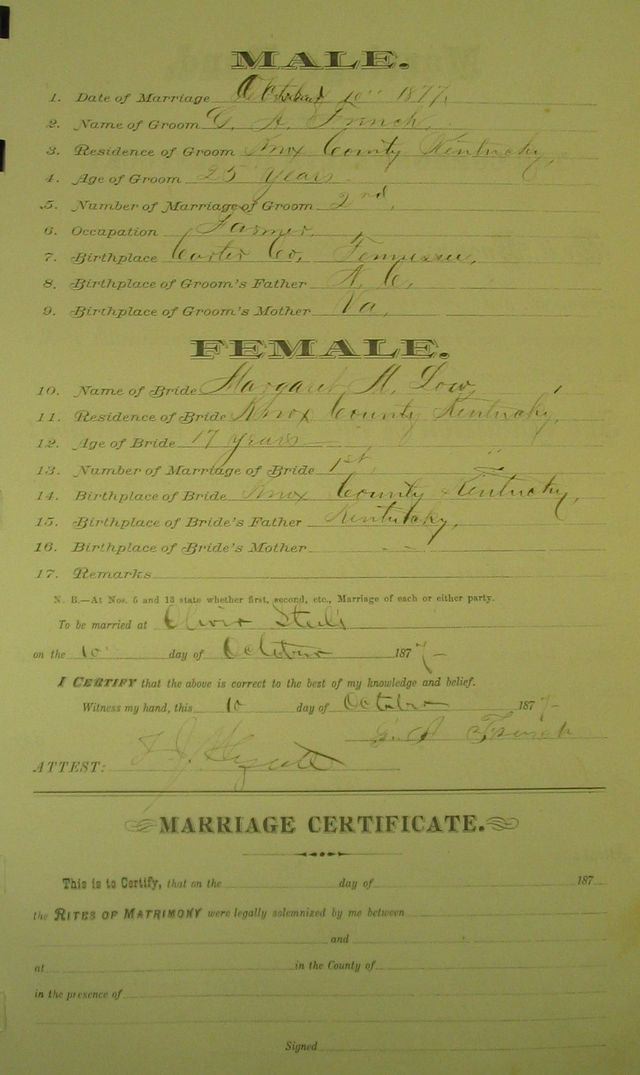 MALE.
1. Date of Marriage October 10" 1877.
2. Name of Groom G. A. French,
3. Residence of Groom Knox County Kentucky,
4. Age of Groom 25 years
5. Number of Marriage of Groom 2nd,
6. Occupation Farmer,
7. Birthplace Carter Co, Tennessee,
8. Birthplace of Groom's Father N. C.
9. Birthplace of Groom's Mother Va,
FEMALE.
10. Name of Bride Margaret M. Low,
11. Residence of Bride Knox County Kentucky,
12. Age of Bride 17 years
13. Number of Marriage of Bride 1st,
14. Birthplace of Bride Knox County Kentucky,
15. Birthplace of Bride's Father Kentucky,
16. Birthplace of Bride's Mother
17. Remarks
N. B.—At Nos. 5 and 13 state whether first, second, etc., Marriage of each or either party.
To be married at
on the 10" day of October 1877
I CERTIFY that the above is correct to the best of my knowledge and belief.
Witness my hand, this 10 day of October 1877
G. A French
ATTEST:
MARRIAGE CERTIFICATE.
This is to Certify, that on the day of 187
the RITES OF MATRIMONY were legally solemnized by me between
and
at in the County of
in the presence of
Signed